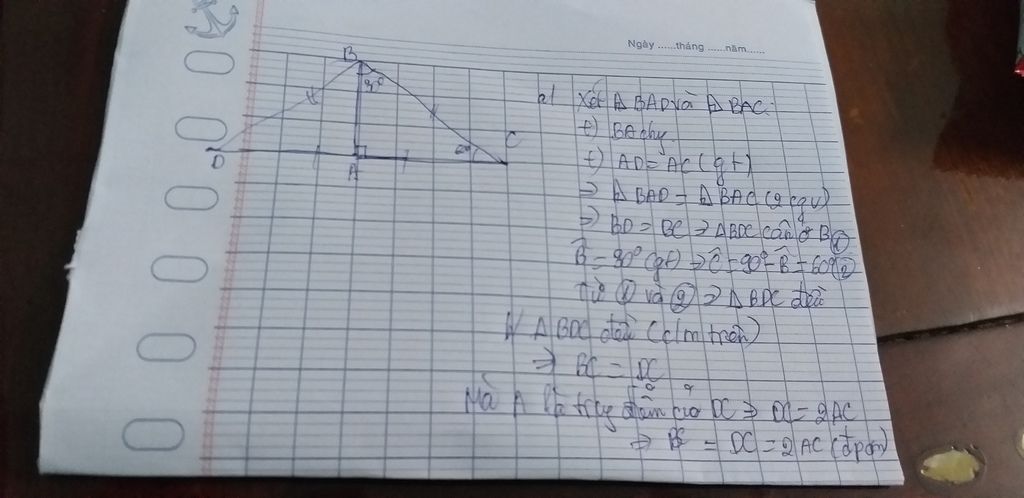 Ngày ......tháng ......năm......
B
30°
D
A
60°
C
a/ Xét Δ BAD và Δ BAC:
+) BA chy
+) AD = AC (gt)
⇒ Δ BAD = Δ BAC (2cgv)
⇒ BD = BC ⇒ ΔBDC cân ở B ①
B̂ = 30° (gt) ⇒ Ĉ = 90° - B̂ = 60° ②
Từ ① và ② ⇒ Δ BDC đều
b/ Δ BDC đều (c/m trên)
⇒ BC = DC
Mà A là trung điểm của DC ⇒ DC = 2AC
⇒ BC = DC = 2AC (đpcm)